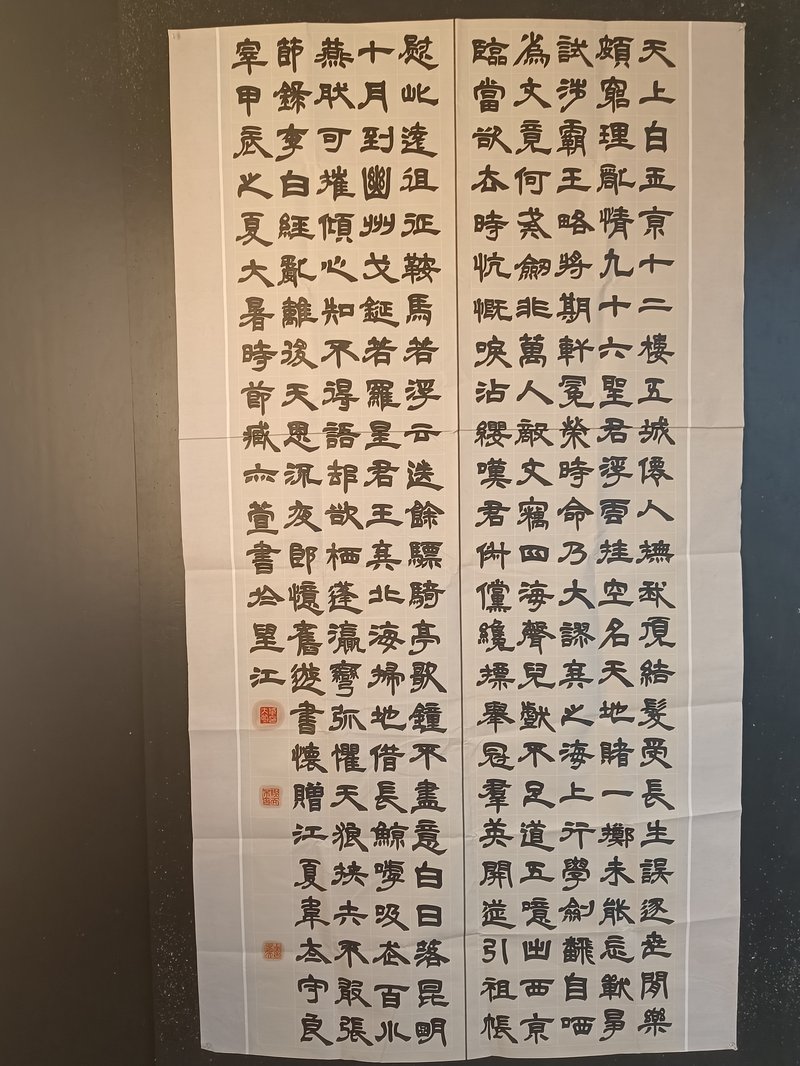 天上白玉京十二樓五城僊人撫我頂結髮受長生誤逐世閒樂
頗窮理亂情九十六聖君浮雲挂空名天地賭一擲未能忘戰爭
試涉霸王略將期軒冕榮時命乃大謬棄之海上行學劍翻自哂
為文竟何成劒非萬人敵文竊四海聲兒戲不足道五噫出西京
臨當欲去時忼慨淚沾纓嘆君倜儻纔標舉冠羣英開筵引祖帳
慰此遠徂征鞍馬若浮云送餘驃騎亭歌鐘不盡意白日落昆明
十月到幽州戈鋋若羅星君王棄北海掃地借長鯨呼吸走百川
燕肰可摧傾心知不得語却欲栖蓬瀛彎弧懼天狼挾矢不敢張
節錄李白經亂離後天恩流夜郎憶舊遊書懷贈江夏韋太守良
宰甲辰之夏大暑時節臧亦萱書於望江